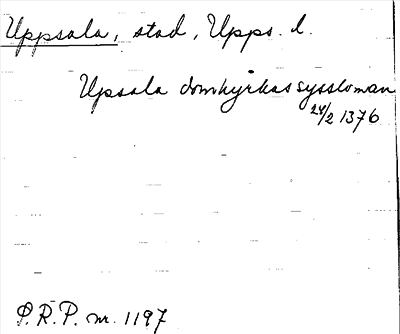 Uppsala, stad, Upps. l.
Upsala domkyrkas syssloman
24/2 1376
P.R.P. nr. 1197